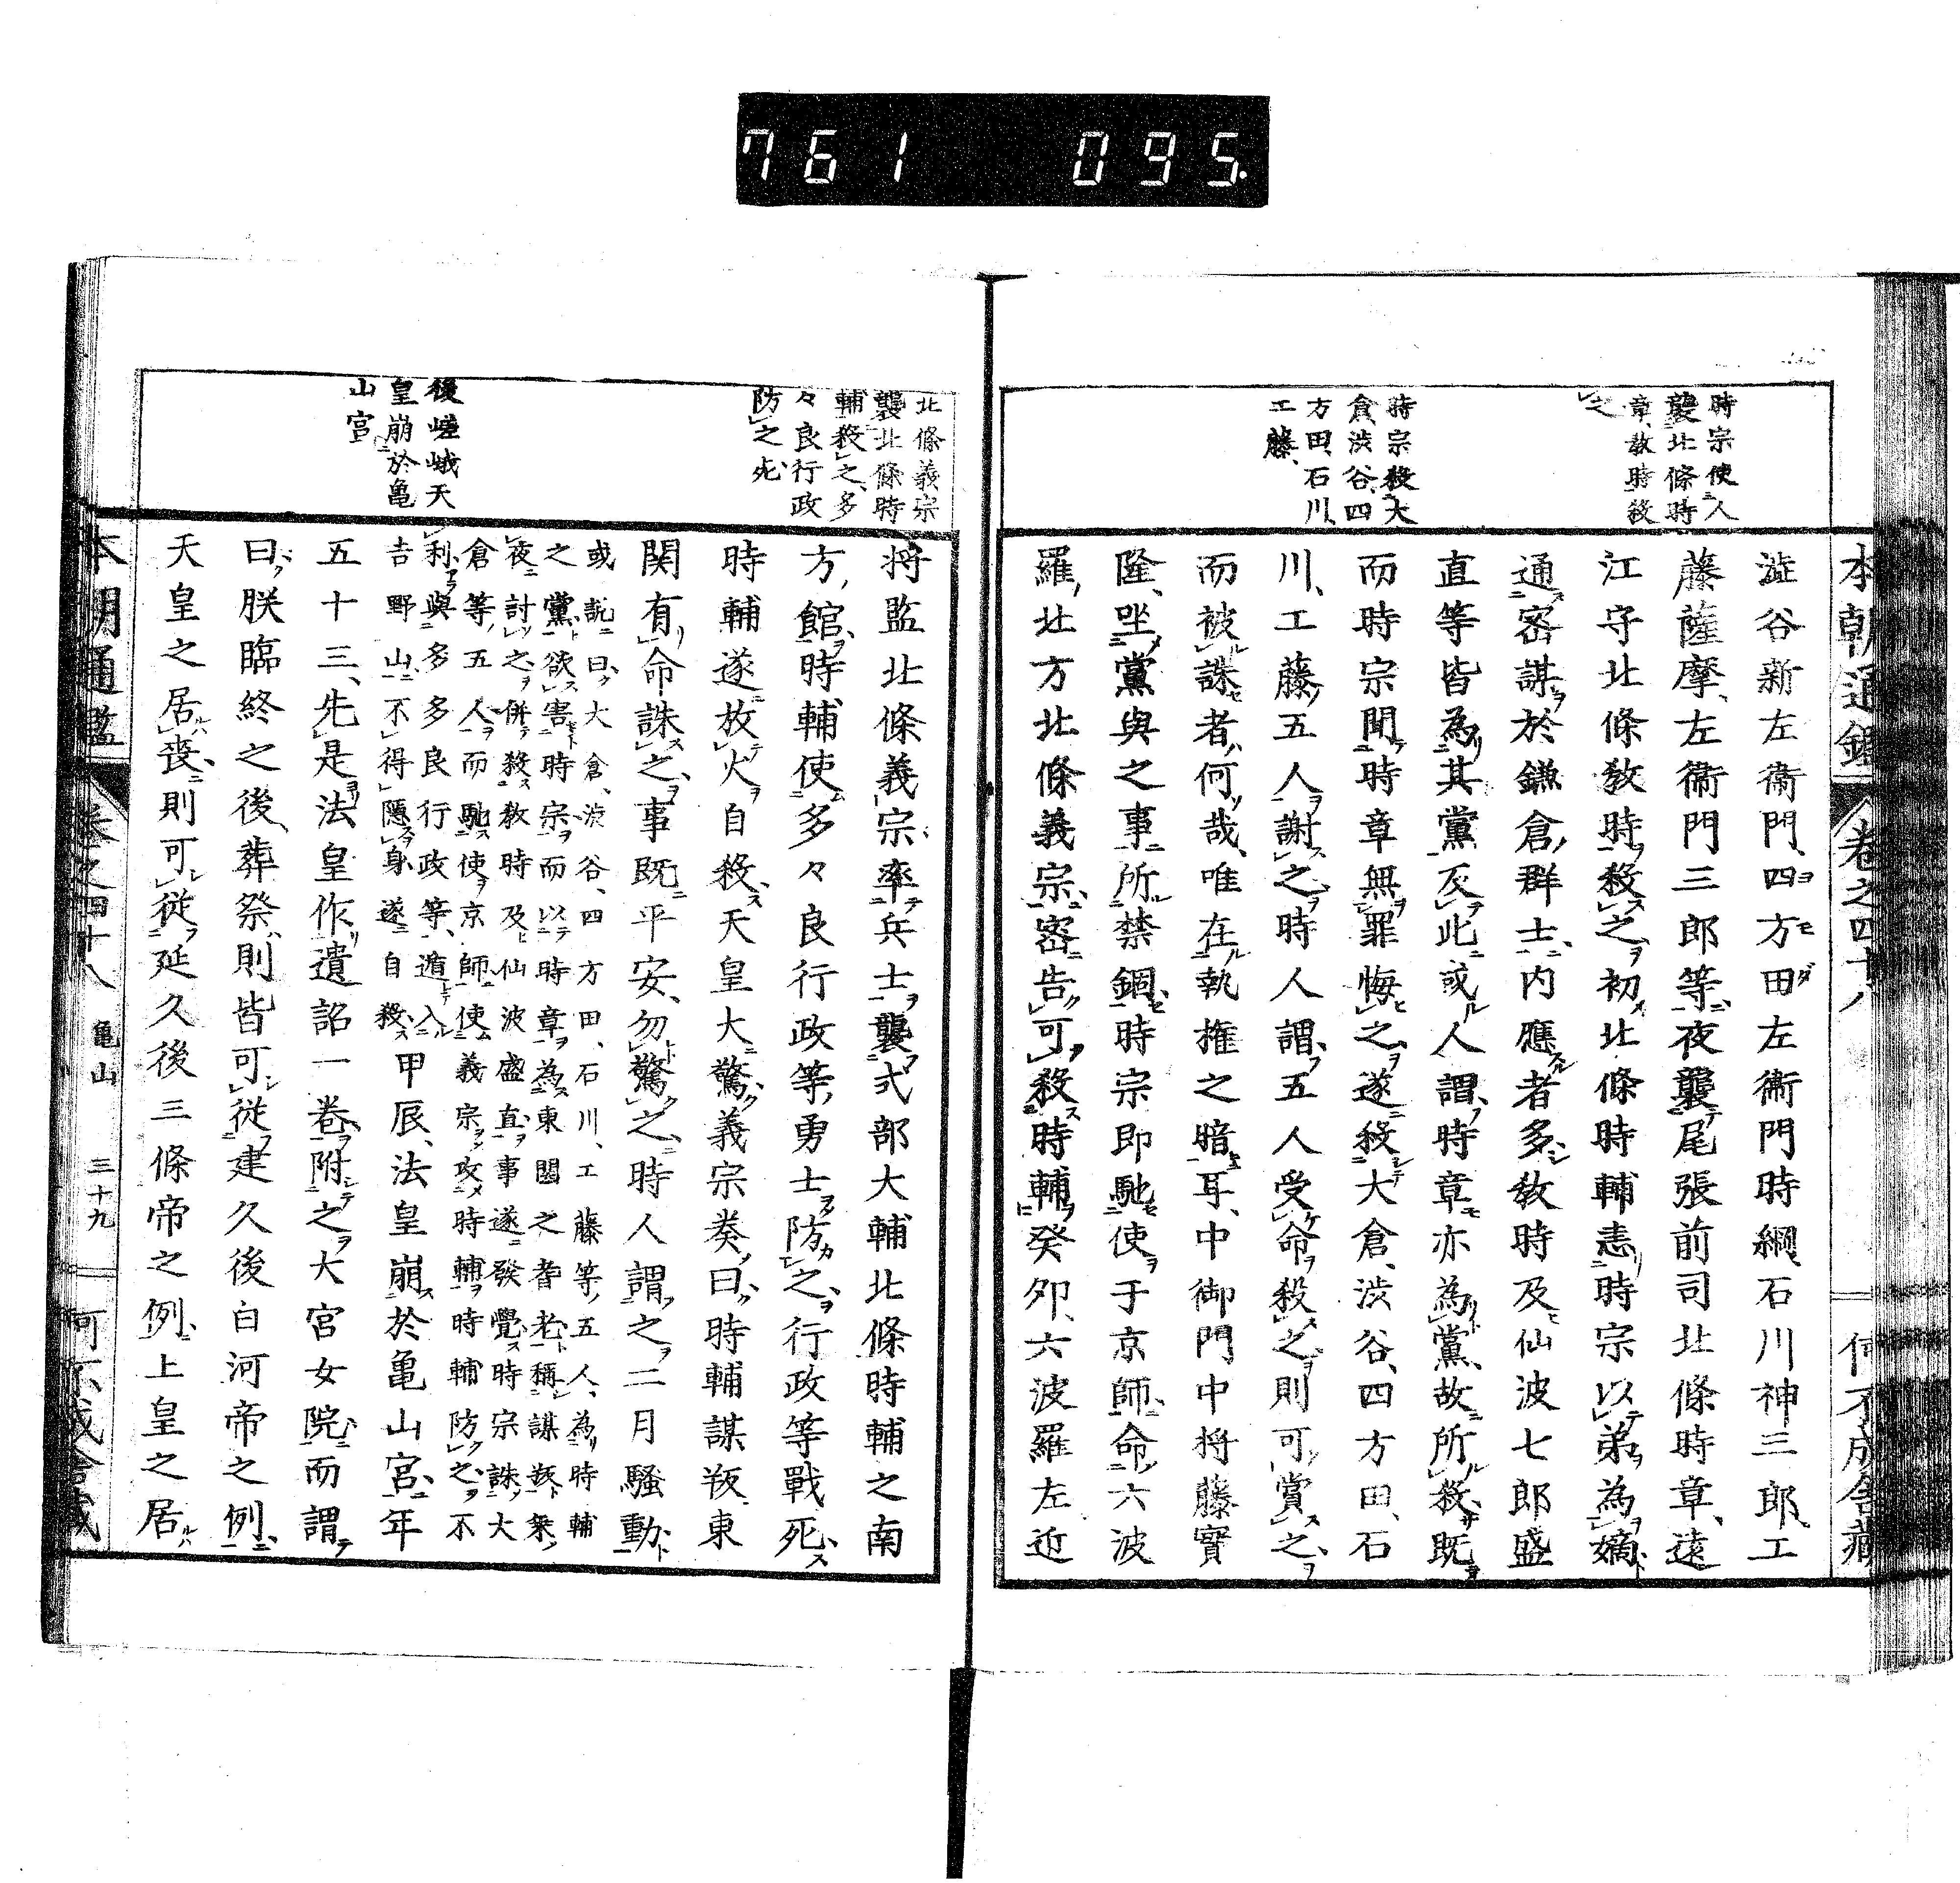 761 095.
本朝通鑑 卷之四十八 何不成舎蔵
時宗使人
襲北條時
章、教時殺
之
時宗殺大
倉、渋谷、四
方田、石川、
工藤、
澁谷新左衞門、四方田左衞門時綱、石川神三郎、工
藤薩摩、左衞門三郎等、夜襲尾張前司北條時章、遠
江守北條教時殺之、初北條時輔恚時宗以弟為嫡、
通密謀於鎌倉群士、内應者多、教時及仙波七郎盛
直等皆為其黨、及此或人謂時章亦為黨、故所殺、既
而時宗聞時章無罪悔之、遂殺大倉、渋谷、四方田、石
川、工藤五人謝之、時人謂、五人受命殺之、則可賞之、
而被誅者何哉、唯在執権之暗耳、中御門中将藤實
隆、坐黨與之事所禁錮、時宗即馳使于京師、命六波
羅北方北條義宗、密告可殺時輔、癸夘、六波羅左近
北條義宗
襲北條時
輔殺之、多
々良行政
防之死
後嵯峨天
皇崩於亀
山宮
将監北條義宗率兵士襲式部大輔北條時輔之南
方館、時輔使多々良行政等勇士防之、行政等戰死、
時輔遂放火自殺、天皇大驚、義宗奏曰、時輔謀叛、東
関有命誅之、事既平安、勿驚之、時人謂之二月騒動
或説曰、大倉、渋谷、四方田、石川、工藤等五人、為時輔
之黨、欲害時宗而以時章為東國之耆老、稱謀叛衆、
夜討之、併殺教時及仙波盛直、事遂發覺、時宗誅大
倉等五人、而馳使京師、使義宗攻時輔、時輔防之不
利、與多多良行政等、遁入
吉野山、不得隱身遂自殺、
甲辰、法皇崩於亀山宮、年
五十三、先是法皇作遺詔一卷附之大宮女院而謂
曰、朕臨終之後、葬祭則皆可從建久後白河帝之例、
天皇之居喪則可從延久後三條帝之例、上皇之居
本朝通鑑 卷之四十八 亀山 三十九